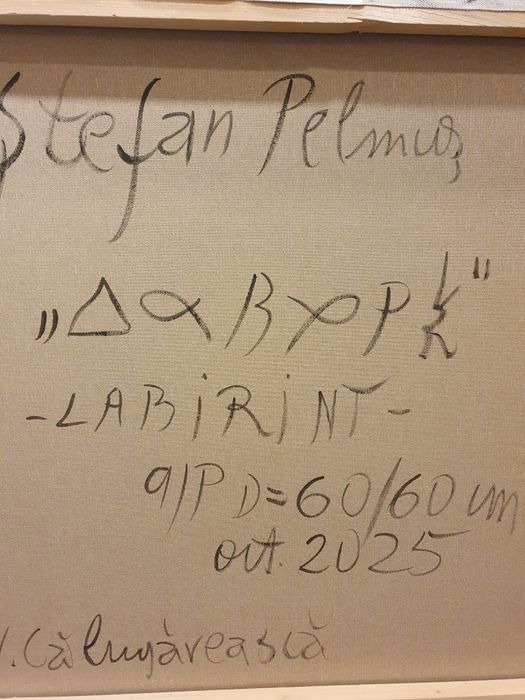 Ștefan Pelmuș
-LABIRINT-
a/P D=60/60 cm
oct. 2025
V. Călugărească